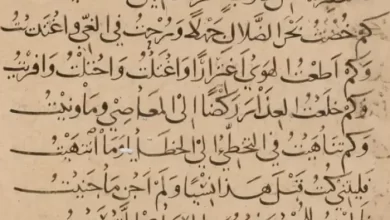 كم خُضْتُ بَحْرَ الضَّلَالِ جَهْلًا وَرُحْتُ في الغَيِّ وَاغْتَدَيْتُ
وَكَمْ اَطَعْتُ الهَوَى اغْتِرَارًا وَاغْتَلْتُ وَاحْتَلْتُ وَافْتَرَيْتُ
وَكَمْ خَلَعْتُ العِذَارَ رَكْضًا اِلى المَعَاصِي وَمَا وَنَيْتُ
وَكَمْ تَنَاهَيْتُ في التَّخَطِّي اِلى الخَطَايَا وَمَا انْتَهَيْتُ
فَلَيْتَنِي كُنْتُ قَبْلَ هَذَا نَسْيًا وَلَمْ اَجْنِ مَا جَنَيْتُ